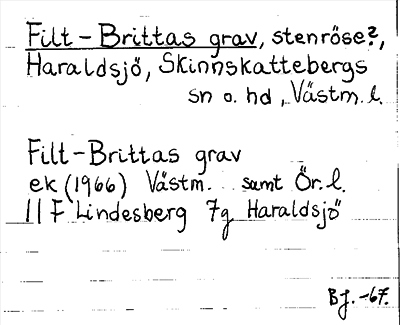 Filt-Brittas grav, stenröse?,
Haraldsjö, Skinnskattebergs
sn o. hd, Västm. l.
Filt-Brittas grav
ek (1966) Västm. samt Ör. l.
11 F Lindesberg 7g Haraldsjö
BJ. -67.